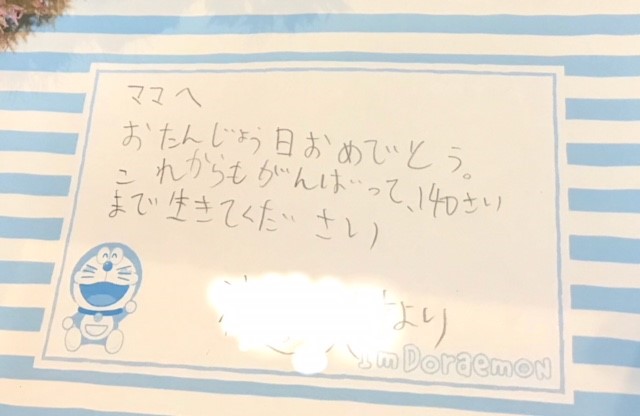 ママへ
おたんじょう日おめでとう。
これからもがんばって、140さい
まで生きてください
より
I'm Doraemon